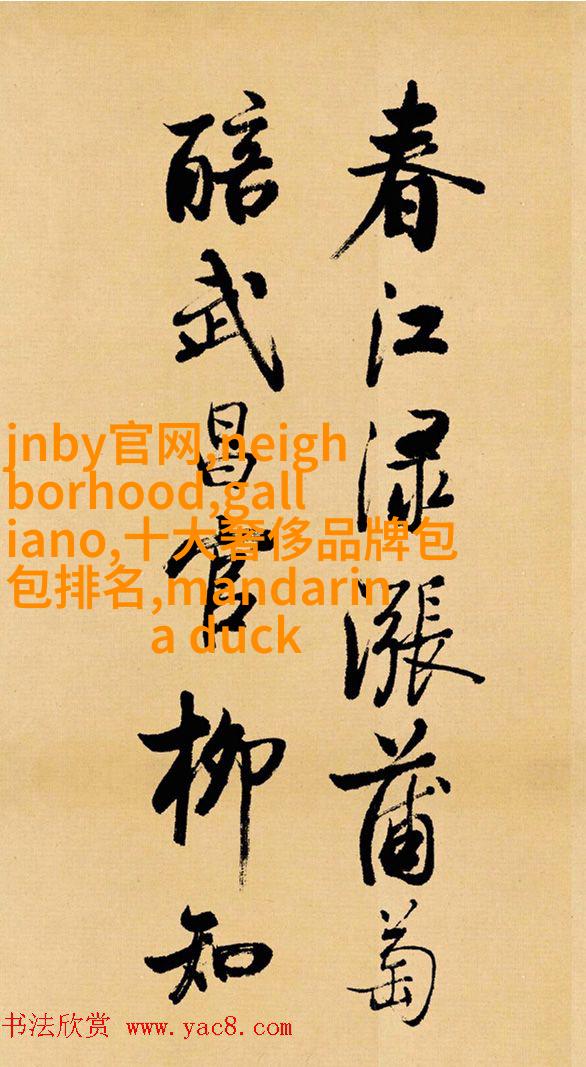 春江渌漲蒲萄
醅武昌官柳知
jnby官网,neigh
borhood,gall
iano,十大奢侈品牌包
包排名,mandarin
a duck
书法欣赏 www.yac8.com